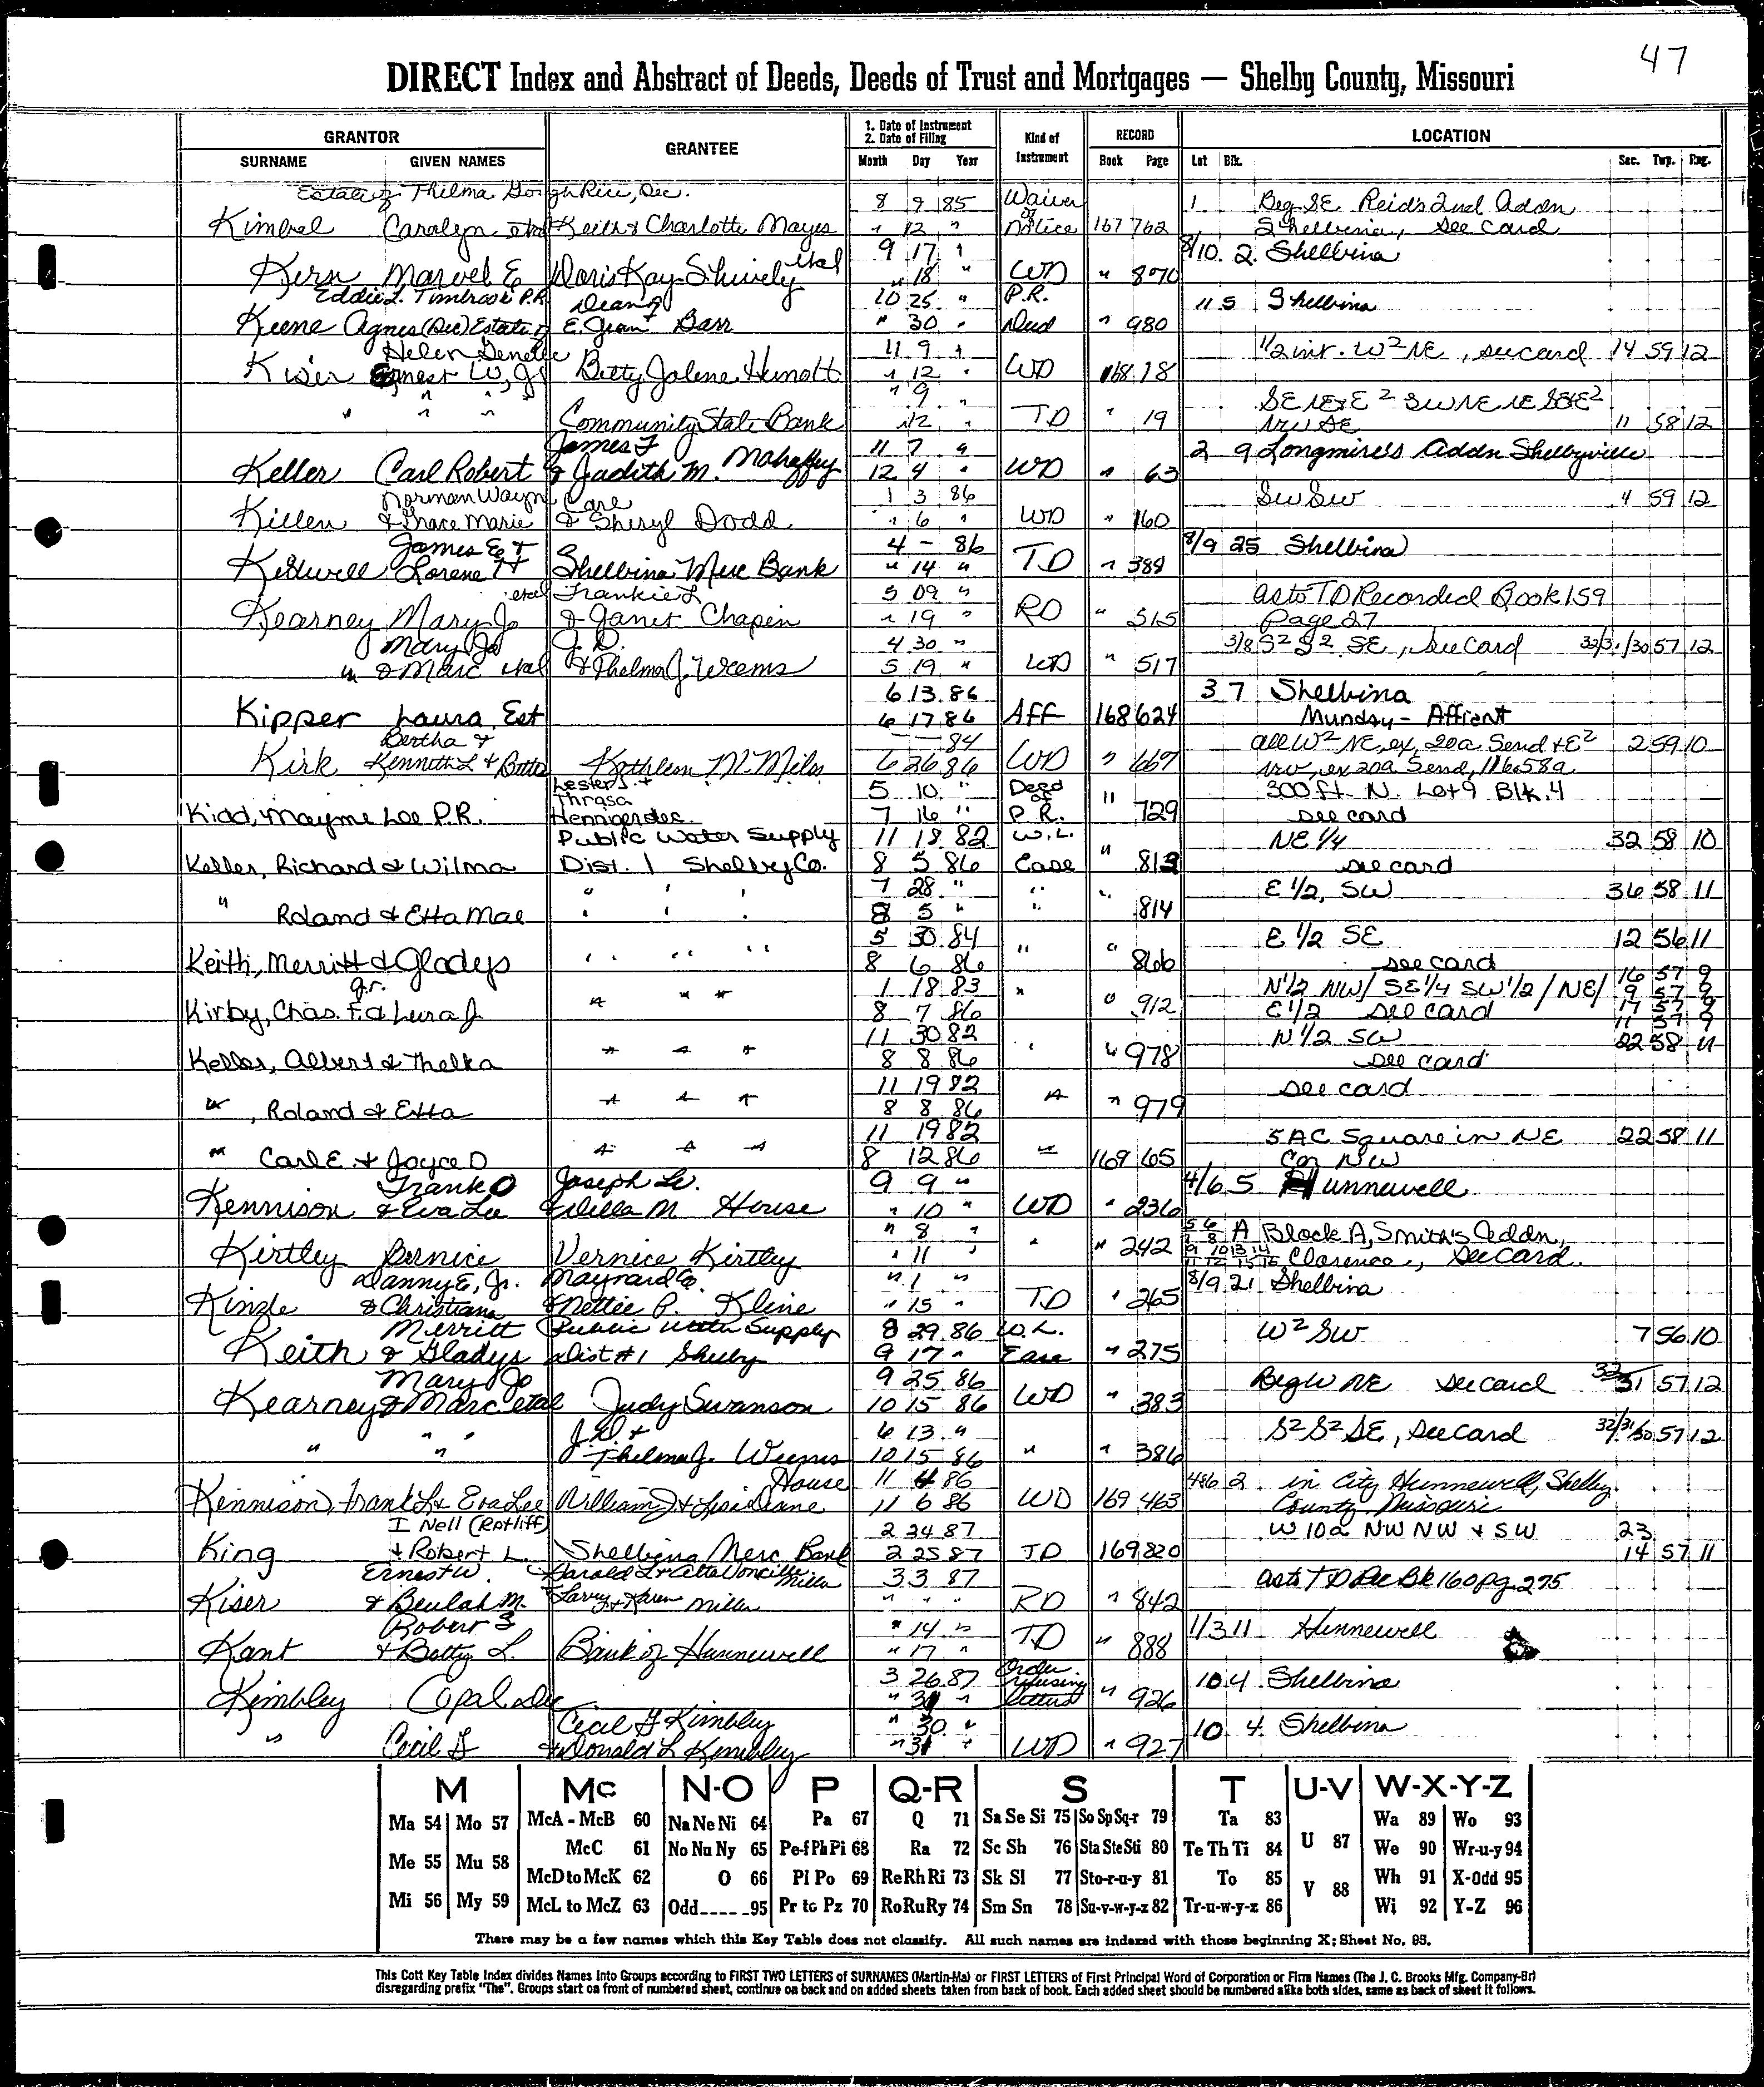 47
DIRECT Index and Abstract of Deeds, Deeds of Trust and Mortgages — Shelby County, Missouri
GRANTOR GRANTEE 1. Date of Instrument 2. Date of Filing Kind of Instrument RECORD LOCATION
SURNAME GIVEN NAMES Month Day Year Book Page Lot Blk. Sec. Twp. Rng.
Estate of Thelma Rice, Dec. 8 9 85 Waiver of 1 Beg SE Reids 2nd Addn
Kimbel Caralyn etal Keith & Charlotte Mayes " 12 " Notice 167 762 Shelbina, See Card
etal 9 17 " 8/10. 2. Shelbina
Kern Marvel E Doris Kay Shively " 18 " WD " 870
Eddie L. Timbrook P.R. Dean & 10 25 " P.R. 11 5 Shelbina
Keene Agnes (Dec) Estate of E. Jean Barr " 30 " Deed " 980
Helen Genelle 11 9 " 1/2 int. W2 NE, see card 14 59 12
Kiser Ernest W, Jr Betty Jolene " 12 " WD 168 18
" " " " 9 " SE NE & E2 SW NE NE SE & E2
Community State Bank " 12 " TD " 19 NW SE 11 58 12
James F 11 7 " 2 9 Longmires Addn Shelbyville
Keller Carl Robert & Judith M. Mahaffey 12 4 " WD " 63
Norman Wayn Carl 1 3 86 SW SW 4 59 12
Killen & Grace Marie & Sheryl Dodd " 6 " WD " 160
James E & 4 - 86 8/9 25 Shelbina
Kidwell Lorene H Shelbina Merc Bank " 14 " TD " 389
etal Frankie L 5 09 " as to TD Recorded Book 159
Kearney Mary Jo & Janet Chapin " 19 " RD " 515 Page 27
Mary Jo J.D. 4 30 " 3/8 S2 S2 SE, See Card 32/31/30 57 12
" & Marc etal & Thelma J. Weems 5 19 " WD " 517
6 13 86 3 7 Shelbina
Kipper Laura, Est 6 17 86 Aff 168 624 Munday - Affient
Bertha & — 84 all W2 NE, ex, 20a Send & E2 2 59 10
Kirk Kenneth L & Kathleen M. Miles 6 26 86 WD " 667 NW, ex 20a Send, 116.58a
Lester J. & Thrasa 5 10 " Deed of 300 ft. N. Lot 9 Blk. 4
Kidd, Mayme Lee P.R. Henniger dec. 7 16 " P.R. " 729 see card
Public Water Supply 11 18 82 W.L. NE 1/4 32 58 10
Keller, Richard & Wilma Dist. 1 Shelby Co. 8 5 86 Ease " 813 see card
7 28 " " E 1/2, SW 36 58 11
" Roland & Etta Mae " " " 8 5 " " " 814
5 30 84 E 1/2 SE 12 56 11
Keith, Merritt & Gladys " " " 8 6 86 " " 866 see card
Jr. 1 18 83 N 1/2 NW/ SE 1/4 SW 1/2 / NE/ 16 57 9 9 57 9
Kirby, Chas. F. & Lura J " " " 8 7 86 " " 912 E 1/2 see card 17 57 9 11 57 9
11 30 82 N 1/2 SW 22 58 11
Keller, Albert & Thelka " " " 8 8 86 " " 978 see card
11 19 82 see card
", Roland & Etta " " " 8 8 86 " " 979
11 19 82 5 AC Square in NE 22 58 11
" Carl E. & Joyce D " " " 8 12 86 " 169 65 Cor NW
Frank O Joseph W. 9 9 " 4/6 5 Hunnewell
Kennison & Eva Lee & Willa M House " 10 " WD " 236
" 8 " 5 6 7 8 A Block A, Smith's Addn,
Kirtley Bernice Vernice Kirtley " 11 " " " 242 9 10 13 14 11 12 15 16 Clarence, See Card.
Danny E, Jr. Maynard C. " 1 " 8/9 21 Shelbina
Kinzle & Christiana & Nettie P. Kline " 15 " TD " 265
Merritt Public Water Supply 8 29 86 W.L. W2 SW 7 56 10
Keith & Gladys Dist #1 Shelby 9 17 " Ease " 275
Mary Jo 9 25 86 Beg W NE See Card 32/31 57 12
Kearney & Marc etal Judy Swanson 10 15 86 WD " 383
" " " J.D. & 6 13 " S2 S2 SE, See Card 32/31/30 57 12
Thelma J. Weems 10 15 86 " " 386
House 11 4 86 4&6 2 in City Hunnewell, Shelby
Kennison, Frank L & Eva Lee William J & Lisa Diane 11 6 86 WD 169 463 County Missouri
I Nell (Ratliff) 2 24 87 W 10a NW NW & SW 23
King & Robert L. Shelbina Merc Bank 2 25 87 TD 169 820 14 57 11
Ernest W. Harold L & Miller 3 3 87 as to TD Rec Bk 160 pg 275
Kiser & Beulah M. Larry & Karen Miller " " " RD " 842
Robert S " 14 " 1/3 11 Hunnewell
Kant & Betty L. Bank of Hunnewell " 17 " TD " 888
3 26 87 Order refusing 10 4 Shelbina
Kimbley Opal Dec " 31 " letters " 926
Cecil G Kimbley " 30 " 10 4 Shelbina
" Cecil G & Donald L Kimbley " 31 " WD " 927
M Mc N-O P Q-R S T U-V W-X-Y-Z
Ma 54 Mo 57 McA - McB 60 Na Ne Ni 64 Pa 67 Q 71 Sa Se Si 75 So Sp Sq-r 79 Ta 83 U 87 Wa 89 Wo 93
Me 55 Mu 58 McC 61 No Nu Ny 65 Pe-f Ph Pi 68 Ra 72 Sc Sh 76 Sta Ste Sti 80 Te Th Ti 84 We 90 Wr-u-y 94
McD to McK 62 O 66 Pl Po 69 Re Rh Ri 73 Sk Sl 77 Sto-r-u-y 81 To 85 V 88 Wh 91 X-Odd 95
Mi 56 My 59 McL to McZ 63 Odd 95 Pr to Pz 70 Ro Ru Ry 74 Sm Sn 78 Su-v-w-y-z 82 Tr-u-w-y-z 86 Wi 92 Y-Z 96
There may be a few names which this Key Table does not classify. All such names are indexed with those beginning X; Sheet No. 95.
This Cott Key Table Index divides Names into Groups according to FIRST TWO LETTERS of SURNAMES (Martin-Ma) or FIRST LETTERS of First Principal Word of Corporation or Firm Names (The J. C. Brooks Mfg. Company-Br)
disregarding prefix "The". Groups start on front of numbered sheet, continue on back and on added sheets taken from back of book. Each added sheet should be numbered alike both sides, same as back of sheet it follows.